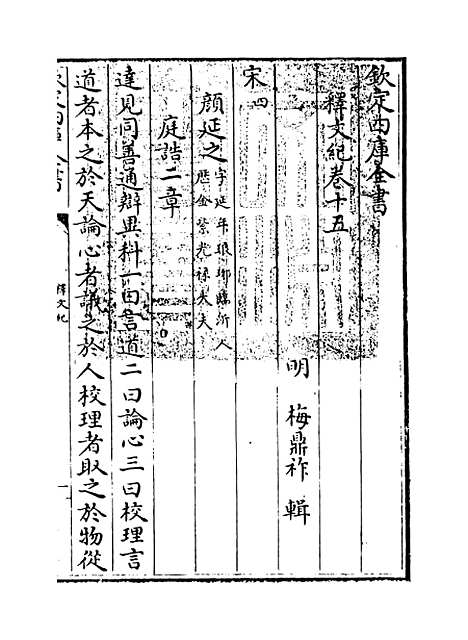 欽定四庫全書
釋文紀卷十五
明 梅鼎祚 輯
宋四
顔延之字延年琅邪臨沂人
歴金紫光禄大夫
庭誥二章
達見同善通辯異科一曰言道二曰論心三曰校理言
道者本之於天論心者議之於人校理者取之於物從
欽定四庫全書
釋文紀
一